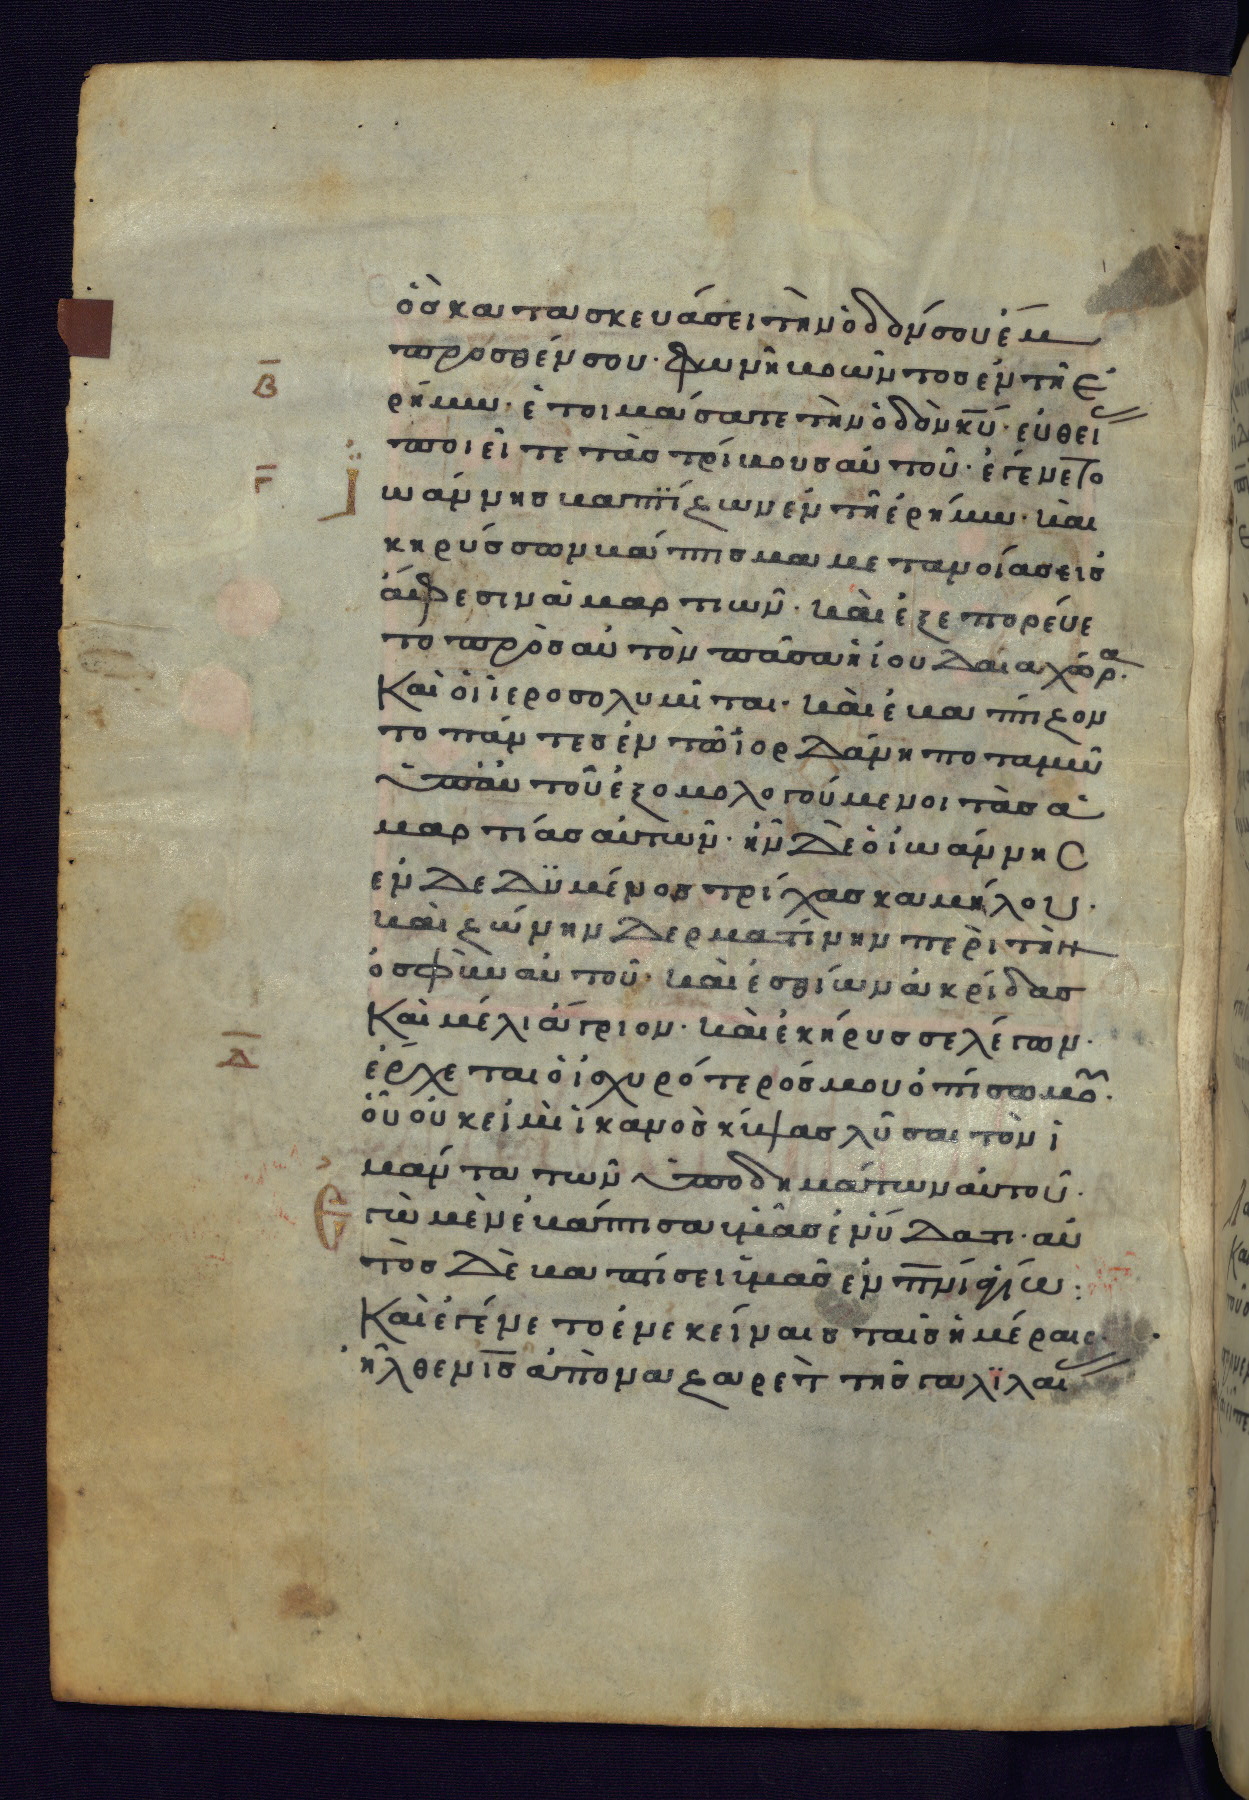 ὃσ κατασκευάσει τὴν ὁδόν σου ἔμ
προσθέν σου· φωνὴ βοῶντοσ ἐν τῆ ἐ
Β
ρήμω· ἑτοιμάσατε τὴν ὁδὸν κῡ· εὐθεί
ποιεῖτε τὰσ τρίβουσ αὐτοῦ· ἐγένετο
Γ Ϊ
ωάννησ βαπτίζων ἐν τῆ ἐρήμω· καὶ
κηρύσσων βάπτισμα μετανοίασ εἰσ
ἄφεσιν ἁμαρτιῶν· καὶ ἐξεπορεύε
το πρὸσ αὐτὸν πᾶσα ἡ ἰουδαία χώρα·
Καὶ οἱ ἱεροσολυμῖται· καὶ ἐβαπτίζον
το πάντεσ ἐν τῶ ἰορδάνη ποταμῶ
ὑπ' αὐτοῦ ἐξομολογούμενοι τὰσ ἁ
μαρτίασ αὐτῶν· ἦν δὲ ὁ ἰωάννησ
ἐνδεδϋμένοσ τρίχασ καμήλου·
καὶ ζώνην δερματίνην περὶ τὴν
ὀσφὺν αὐτοῦ· καὶ ἐσθίων ἀκρίδασ
Καὶ μέλι ἄγριον· καὶ ἐκήρυσσε λέγων·
Δ
ἔρχεται ὁ ἰσχυρότερόσ μου ὀπίσω μου·
οὗ οὐκ εἰμὶ ἱκανοσ κύψασ λῦσαι τὸν ἱ
μάντα τῶν ὑποδημάτων αὐτοῦ·
Ἐγὼ μὲν ἐβάπτισα ὑμᾶσ ἐν ὕδατι· αὐ
τὸσ δὲ βαπτίσει ὑμᾶσ ἐν πνῑ ἁγίω:
Καὶ ἐγένετο ἐν ἐκείναισ ταῖσ ἡμέραισ·
ἦλθεν ῑσ ἀπὸ ναζαρὲτ τῆσ γαλϊλαι